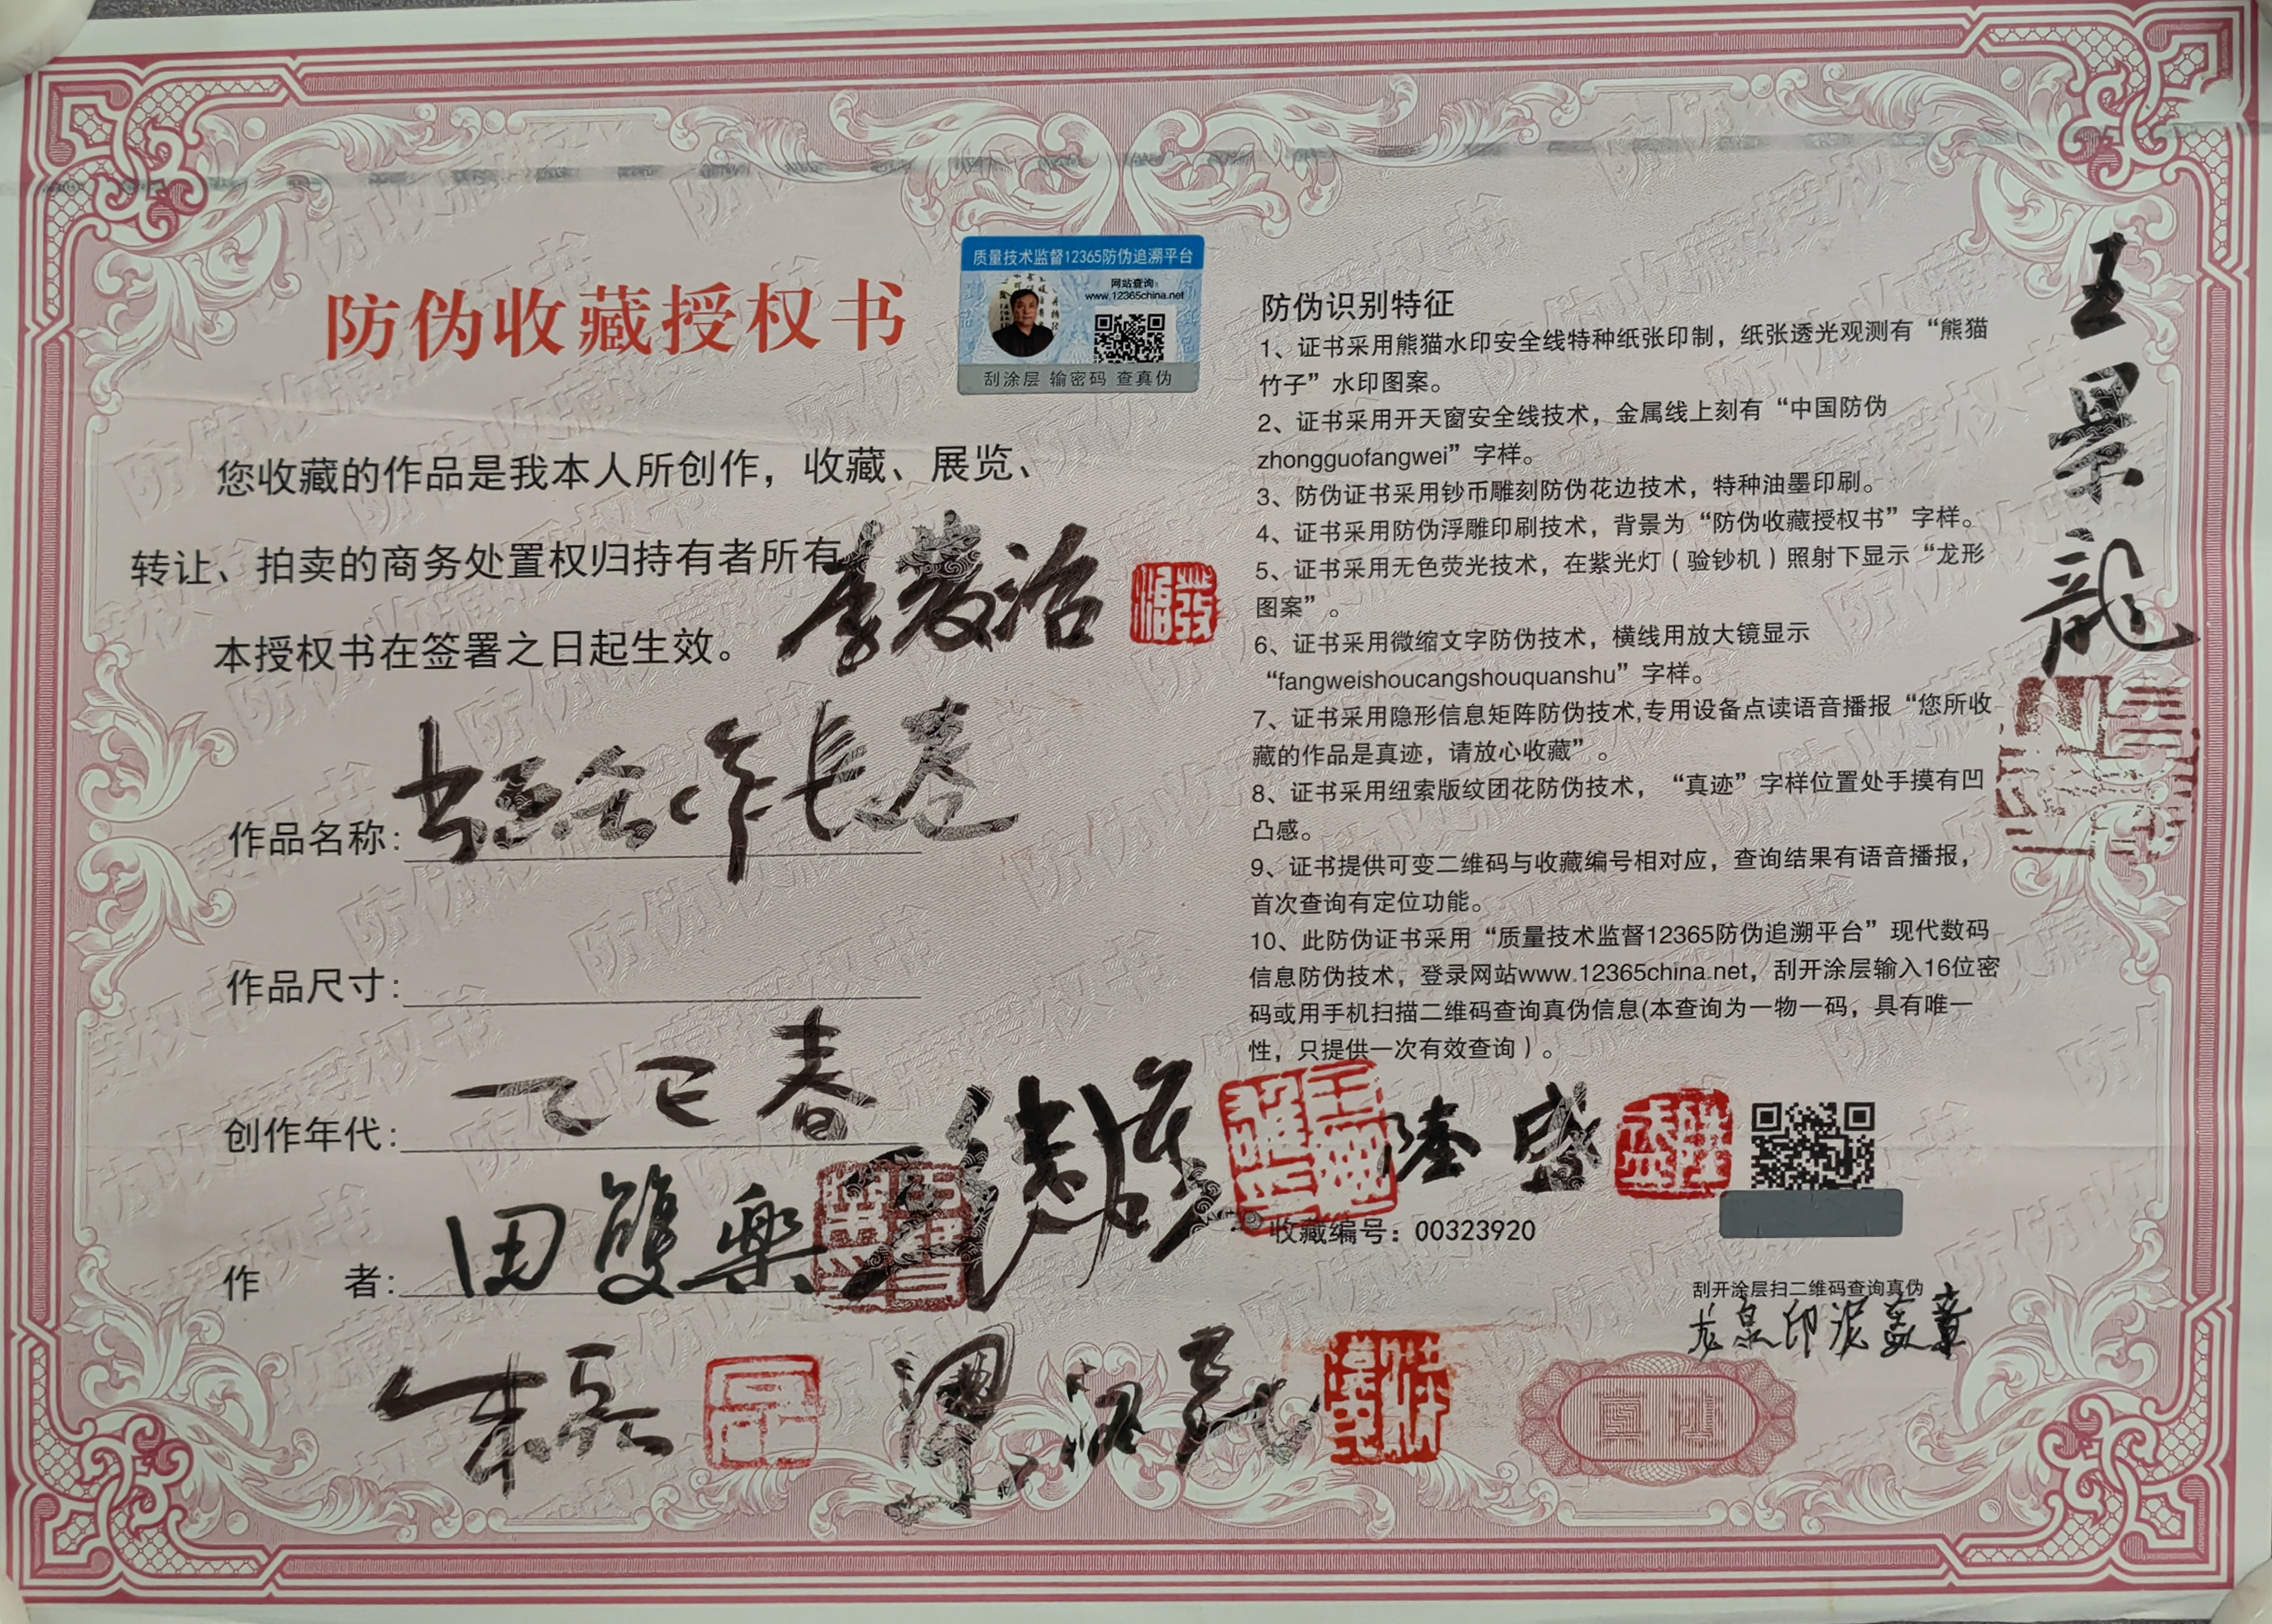 防伪收藏授权书
质量技术监督12365防伪追溯平台
网站查询：
www.12365china.net
刮涂层 输密码 查真伪
您收藏的作品是我本人所创作，收藏、展览、
转让、拍卖的商务处置权归持有者所有
本授权书在签署之日起生效。
李发治
作品名称：书画合作长卷
作品尺寸：
创作年代：
春
作　　者：田雙樂
陆盛
朱兵
防伪识别特征
1、证书采用熊猫水印安全线特种纸张印制，纸张透光观测有“熊猫
竹子”水印图案。
2、证书采用开天窗安全线技术，金属线上刻有“中国防伪
zhongguofangwei”字样。
3、防伪证书采用钞币雕刻防伪花边技术，特种油墨印刷。
4、证书采用防伪浮雕印刷技术，背景为“防伪收藏授权书”字样。
5、证书采用无色荧光技术，在紫光灯（验钞机）照射下显示“龙形
图案”。
6、证书采用微缩文字防伪技术，横线用放大镜显示
“fangweishoucangshouquanshu”字样。
7、证书采用隐形信息矩阵防伪技术,专用设备点读语音播报“您所收
藏的作品是真迹，请放心收藏”。
8、证书采用纽索版纹团花防伪技术，“真迹”字样位置处手摸有凹
凸感。
9、证书提供可变二维码与收藏编号相对应，查询结果有语音播报，
首次查询有定位功能。
10、此防伪证书采用“质量技术监督12365防伪追溯平台”现代数码
信息防伪技术，登录网站www.12365china.net，刮开涂层输入16位密
码或用手机扫描二维码查询真伪信息(本查询为一物一码，具有唯一
性，只提供一次有效查询）。
收藏编号：00323920
刮开涂层扫二维码查询真伪
龙泉印泥
真迹
王景龍